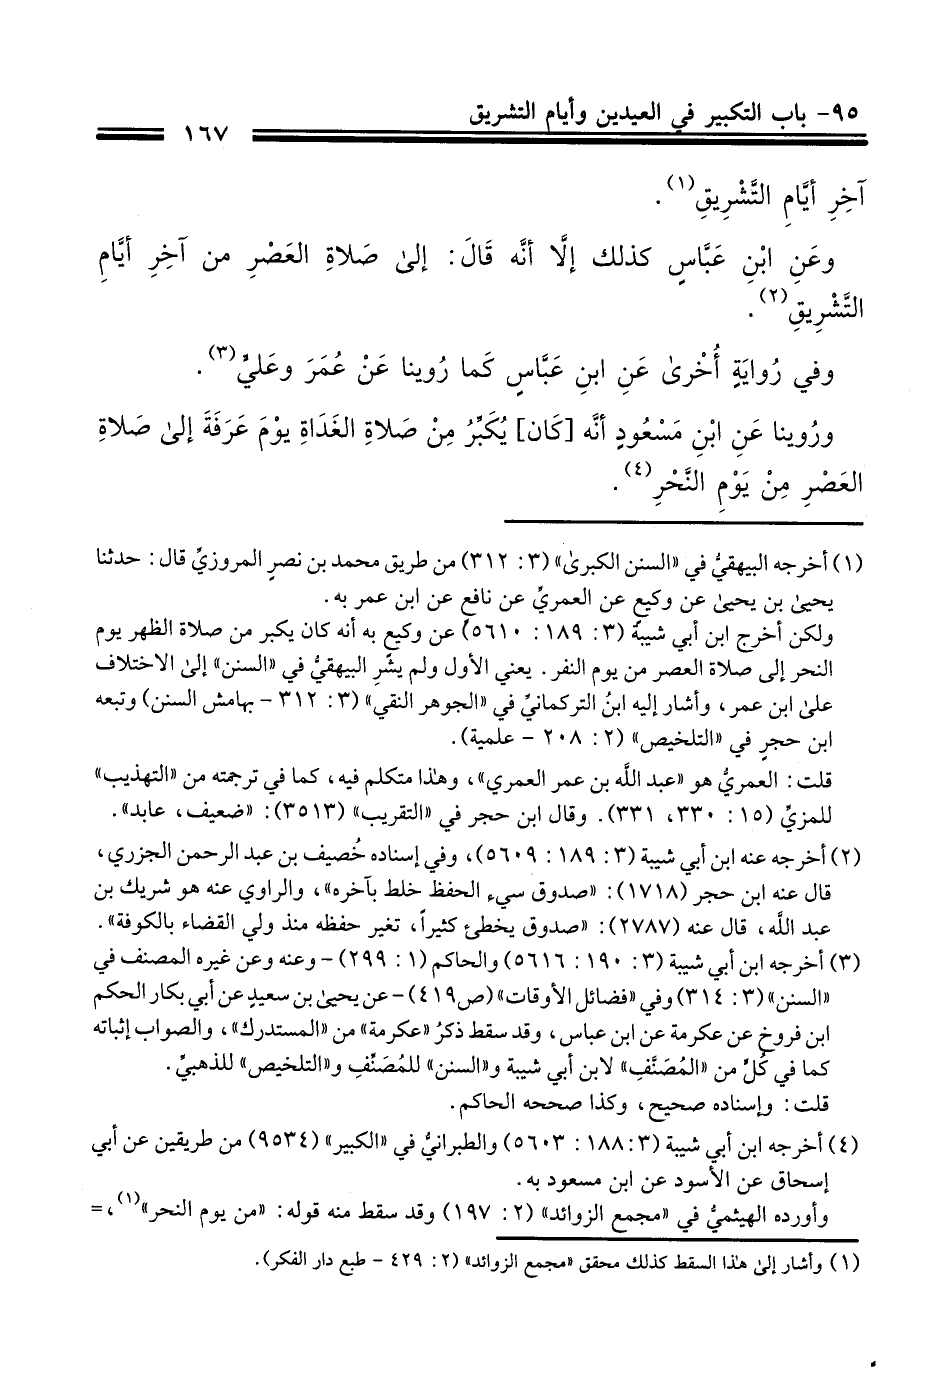 ٩٥- باب التكبير في العيدين وأيام التشريق
١٦٧
آخِرِ أيَّامِ التَّشْرِيقِ(١).
وعَنِ ابْنِ عَبَّاسٍ كذلك إلَّا أنَّه قَالَ: إلىٰ صَلاةِ العَصْرِ من آخِرِ أيَّامِ
التَّشْرِيقِ(٢).
وفي رُوايَةٍ أُخْرىٰ عَنِ ابنِ عَبَّاسٍ كَما رُوينا عَنْ عُمَرَ وعَليٍّ(٣).
ورُوينا عَنِ ابْنِ مَسْعُودٍ أنَّه [كَان] يُكَبِّرُ مِنْ صَلاةِ الغَدَاةِ يوْمَ عَرَفَةَ إلىٰ صَلاةِ
العَصْرِ مِنْ يَوْمِ النَّحْرِ(٤).
(١) أخرجه البيهقيُّ في «السنن الكبرىٰ» (٣: ٣١٢) من طريق محمد بن نصرٍ المروزيِّ قال: حدثنا
يحيىٰ بن يحيىٰ عن وكيع عن العمريِّ عن نافعٍ عن ابن عمر به.
ولكن أخرج ابن أبي شيبة (٣: ١٨٩: ٥٦١٠) عن وكيع به أنه كان يكبر من صلاة الظهر يوم
النحر إلى صلاة العصر من يوم النفر. يعني الأول ولم يشرِ البيهقيُّ في «السنن» إلىٰ الاختلاف
علىٰ ابن عمر، وأشار إليه ابنُ التركمانيِّ في «الجوهر النقي» (٣: ٣١٢ - بهامش السنن) وتبعه
ابن حجرٍ في «التلخيص» (٢: ٢٠٨ - علمية).
قلت: العمريُّ هو «عبد الله بن عمر العمري»، وهٰذا متكلم فيه، كما في ترجمته من «التهذيب»
للمزيِّ (١٥: ٣٣٠، ٣٣١). وقال ابن حجر في «التقريب» (٣٥١٣): «ضعيف، عابد».
(٢) أخرجه عنه ابن أبي شيبة (٣: ١٨٩: ٥٦٠٩)، وفي إسناده خُصيف بن عبد الرحمن الجزري،
قال عنه ابن حجر (١٧١٨): «صدوق سيء الحفظ خلط بآخره»، والراوي عنه هو شريك بن
عبد الله، قال عنه (٢٧٨٧): «صدوق يخطئ كثيراً، تغير حفظه منذ ولي القضاء بالكوفة».
(٣) أخرجه ابن أبي شيبة (٣: ١٩٠: ٥٦١٦) والحاكم (١: ٢٩٩) - وعنه وعن غيره المصنف في
«السنن» (٣: ٣١٤) وفي «فضائل الأوقات» (ص٤١٩) - عن يحيىٰ بن سعيدٍ عن أبي بكار الحكم
ابن فروخ عن عكرمة عن ابن عباس، وقد سقط ذكرُ «عكرمة» من «المستدرك»، والصواب إثباته
كما في كُلٍّ من «المُصَنَّفِ» لابن أبي شيبة و«السنن» للمُصَنِّفِ و«التلخيص» للذهبيِّ.
قلت: وإسناده صحيح، وكذا صححه الحاكم.
(٤) أخرجه ابن أبي شيبة (٣: ١٨٨: ٥٦٠٣) والطبرانيُّ في «الكبير» (٩٥٣٤) من طريقين عن أبي
إسحاق عن الأسود عن ابن مسعود به.
وأورده الهيثميُّ في «مجمع الزوائد» (٢: ١٩٧) وقد سقط منه قوله: «من يوم النحر»(١)، =
(١) وأشار إلىٰ هٰذا السقط كذلك محقق «مجمع الزوائد» (٢: ٤٢٩ - طبع دار الفكر).